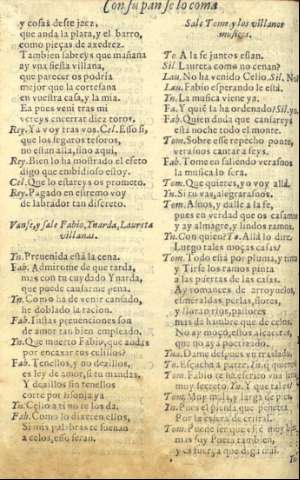 Con su pan se lo coma
y cosas deste jaez,
que anda la plata, y el barro,
como pieças de axedrez.
Tambien sabreys que mañana
ay vna fiesta villana,
que parecer os podria
mejor que la cortesana
en vuestra casa, y la mia.
Ea pues veni tras mi
vereys encerrar diez toros.
Rey. Ya voy tras vos. Cel. Esso si,
que los seguros tesoros,
no estan alla, sino aqui,
Rey. Bien lo ha mostrado el efeto
digo que embidioso estoy.
Cel. Que lo estareys os prometo.
Rey. Pagado en estremo voy
de labrador tan discreto.
Vanse, y sale Fabio, Ynarda, Laureta
villanas.
Yn. Preuenida está la cena.
Fab. Admirome de que tarda,
mas con tu cuydado Ynarda,
que puede causarme pena.
Yn. Como ha de venir cansado,
he doblado la racion.
Fab. Iustas preuenciones son
de amor tan bien empleado.
Yn. Que muerto Fabio, que andas
por encaxar tus celillos?
Fab. Tenellos, y no dezillos,
es ley de amor, si tu mandas,
Y dezillos sin tenellos
corte por lisonja ya
Yn. Celio a ti no te los da.
Fab. Como lo dizen ellos,
Si mis palabras te suenan
a celos, esso seran.
Sale Tome, y los villanos
musicos.
To. A la fe juntos estan.
Sil. Laureta como no cenan?
Lau. No ha venido Celio. Sil. No
Lau. Fabio esperando le está.
Yn. La musica viene ya.
Fa. Y quié la ha ordenado? Sil. yo
Fab. Quien duda que cansareys
esta noche todo el monte.
Tom. Sobre esse repecho ponte,
verasnos cantar a seys.
Fab. Tome en saliendo verasnos
la musica lo sera.
Tom. Que quieres, yo voy allá.
Yn. Si tu vas, alegrarasnos.
Tom. Asnos, y dalle a la fe,
pues en verdad que os casamos
y ay almagre, y lindos ramos.
Yn. Con quien? To. Allá lo diré.
Luego tales moças casas?
Tom. Todo está por pluma, y tinta
y Tirse los ramos pinta
a las puertas de las casas.
Ay romances de arroyuelos,
esmeraldas, perlas, flores,
y lloran rios, pastores
mas de hambre que de celos.
No ay moço,
que no ay a poetizado.
Yna. Dame despues vn traslado,
To. Escucha a parte. Yn. di quedo
Tom. Fabio te ha escrito vna
muy secreto. Yn. Y que tales?
Tom. Muy mala, y larga de pies.
Yn. Pues el piensa que penetra
Por la esfera de cristal.
Tom. Puede ser que
mas soy Poeta tambien,